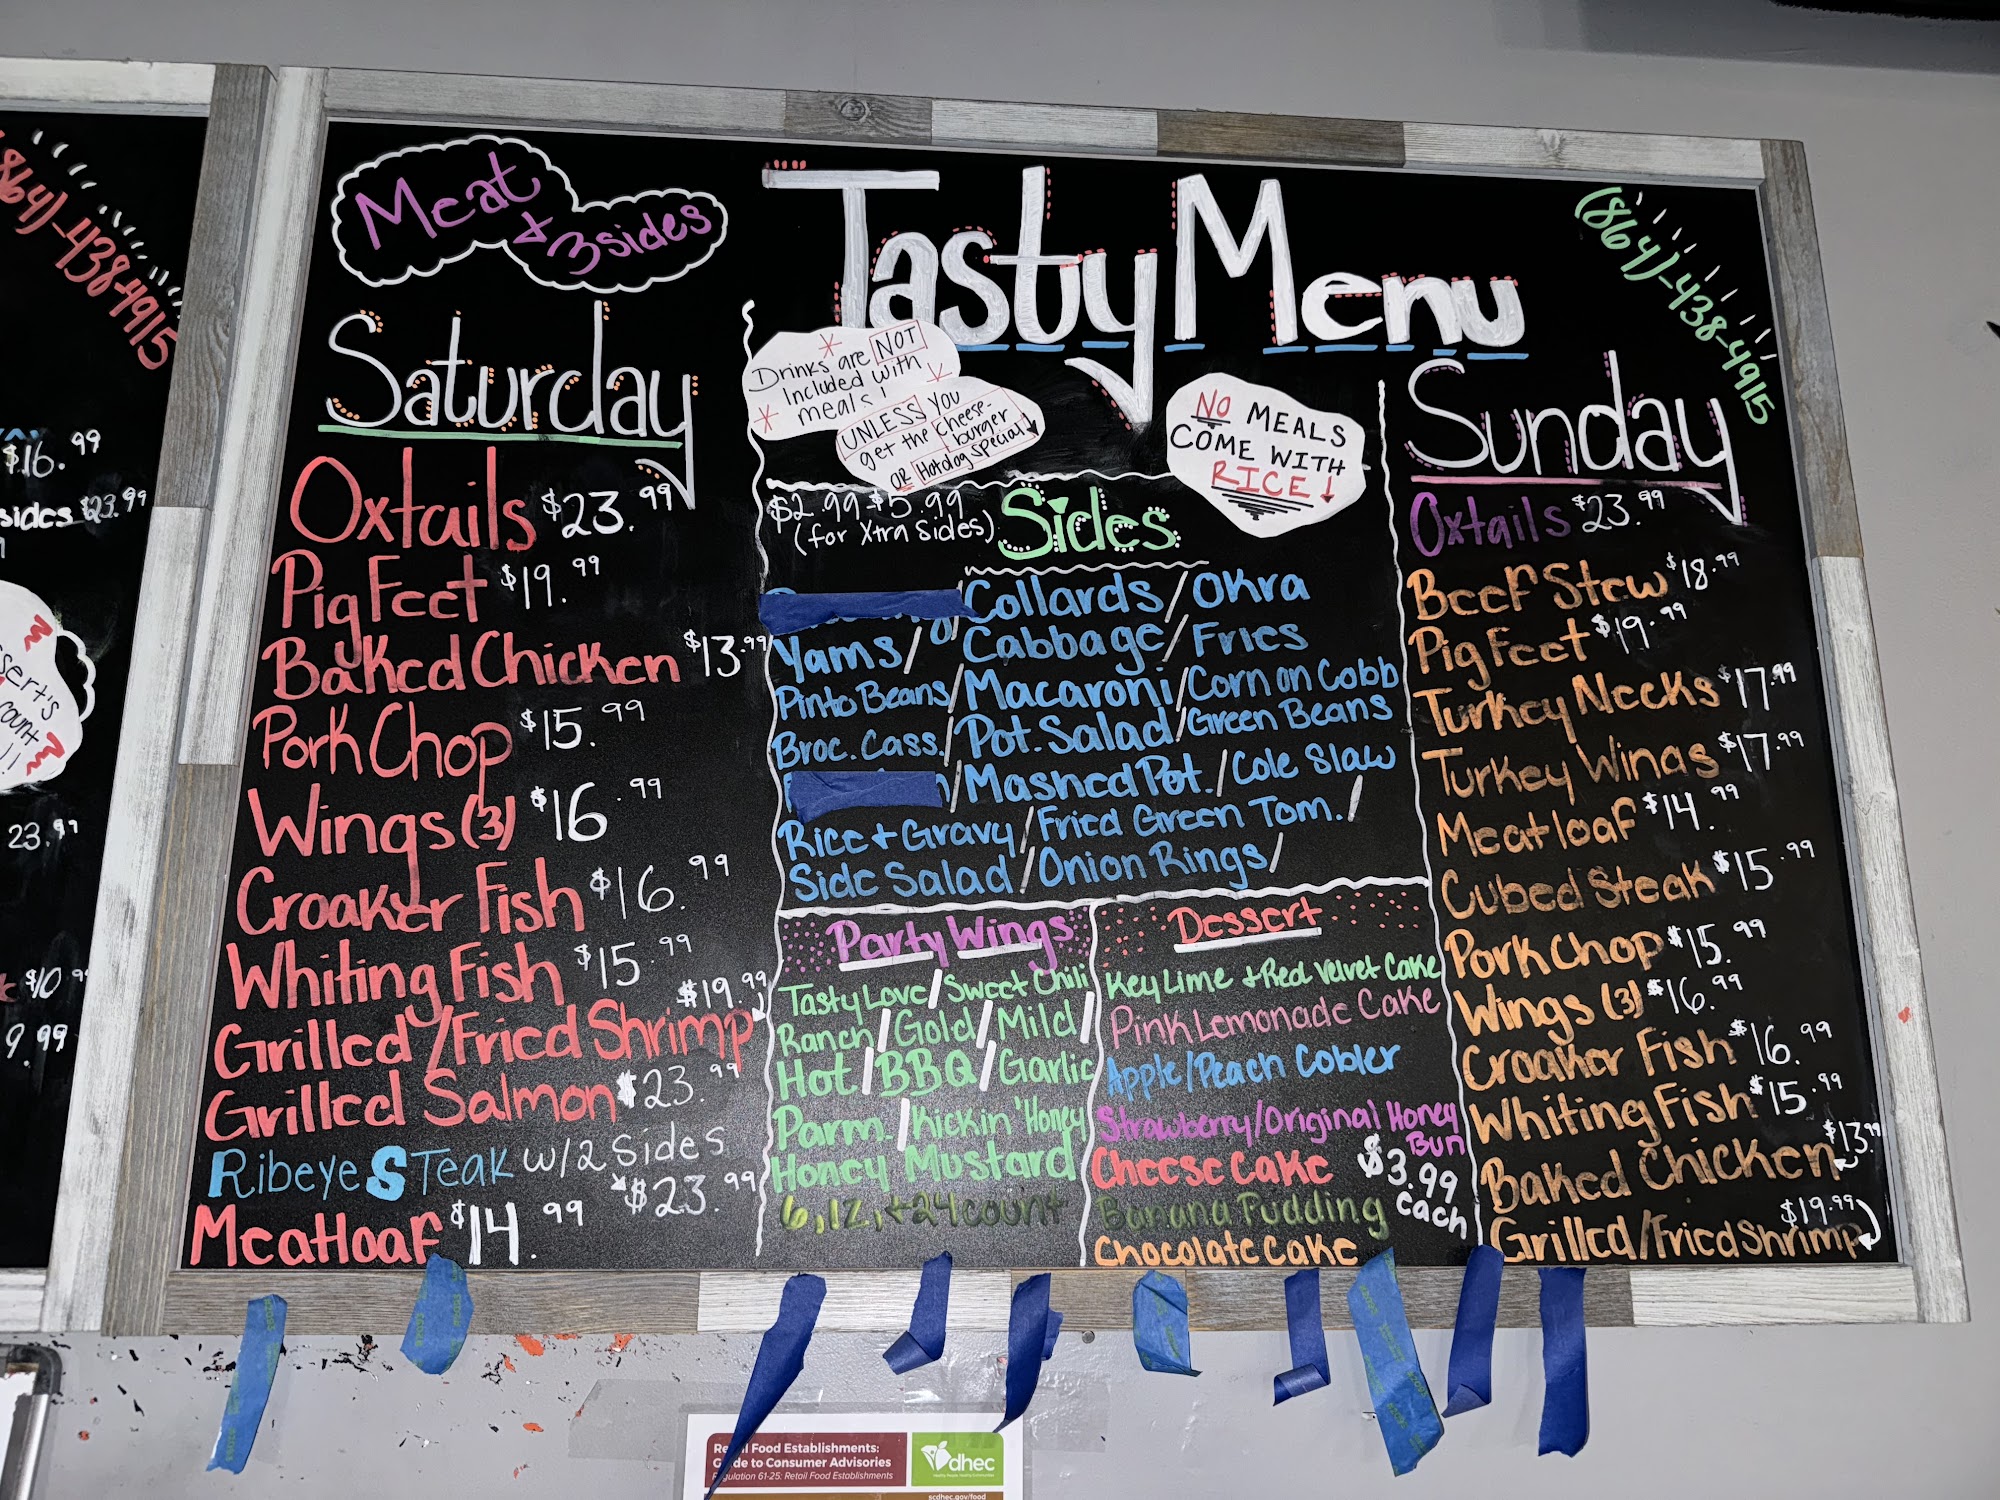 (864)-438-4915
$16.99
sides $23.99
sserts
count
!!
23.99
$10.9
9.99
Meat
+ 3 sides
Tasty Menu
(864)-438-4915
Saturday
Oxtails $23.99
Pig Feet $19.99
Baked Chicken $13.99
Pork Chop $15.99
Wings (3) $16.99
Croaker Fish $16.99
Whiting Fish $15.99
$19.99
Grilled/Fried Shrimp
Grilled Salmon $23.99
Ribeye STeak w/2 Sides
$23.99
Meatloaf $14.99
Drinks are NOT
Included with
meals!
UNLESS you
get the cheese-
burger
OR Hotdog special!
NO MEALS
COME WITH
RICE!
$2.99 $5.99
(for Xtra Sides)
Sides
/Collards/Okra
Yams/Cabbage/Fries
Pinto Beans/Macaroni/Corn on Cobb
Broc. Cass./Pot. Salad/Green Beans
/Mashed Pot./Cole Slaw
Rice + Gravy/Fried Green Tom./
Side Salad/Onion Rings/
Party Wings
Tasty Love/Sweet Chili
Ranch/Gold/Mild/
Hot/BBQ/Garlic
Parm./Kickin' Honey
Honey Mustard
6, 12, + 24 count
Dessert
Key Lime + Red Velvet Cake
Pink Lemonade Cake
Apple/Peach Cobler
Strawberry/Original Honey
Bun
Cheese Cake $3.99
each
Banana Pudding
Chocolate Cake
Sunday
Oxtails $23.99
Beef Stew $18.99
Pig Feet $19.99
Turkey Necks $17.99
Turkey Wings $17.99
Meatloaf $14.99
Cubed Steak $15.99
Pork Chop $15.99
Wings (3) $16.99
Croaker Fish $16.99
Whiting Fish $15.99
$13.99
Baked Chicken
$19.99
Grilled/Fried Shrimp
Retail Food Establishments:
Guide to Consumer Advisories
Regulation 61-25: Retail Food Establishments
dhec
scdhec.gov/food